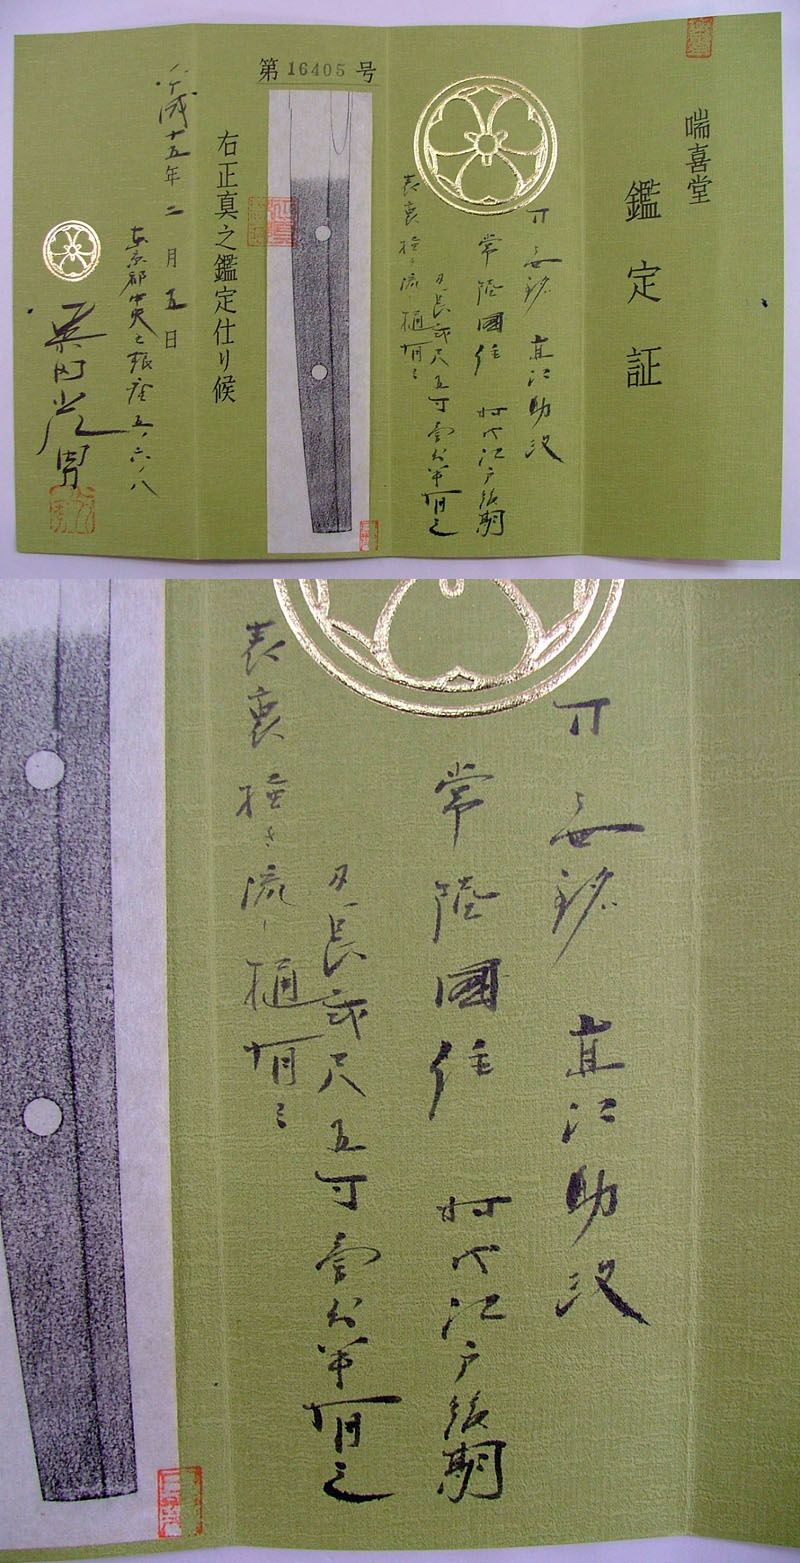 喘喜堂
鑑定証
刀 無銘 直江助政
常陸國住 時代江戸後期
刃長弐尺五寸壱分半有之
表裏掻き流し樋有之
第16405号
右正真之鑑定仕り候
平成十五年二月五日
東京都中央区銀座五ノ六ノ八
刀 無銘 直江助政
常陸國住 時代江戸後期
刃長弐尺五寸壱分半有之
表裏掻き流し樋有之